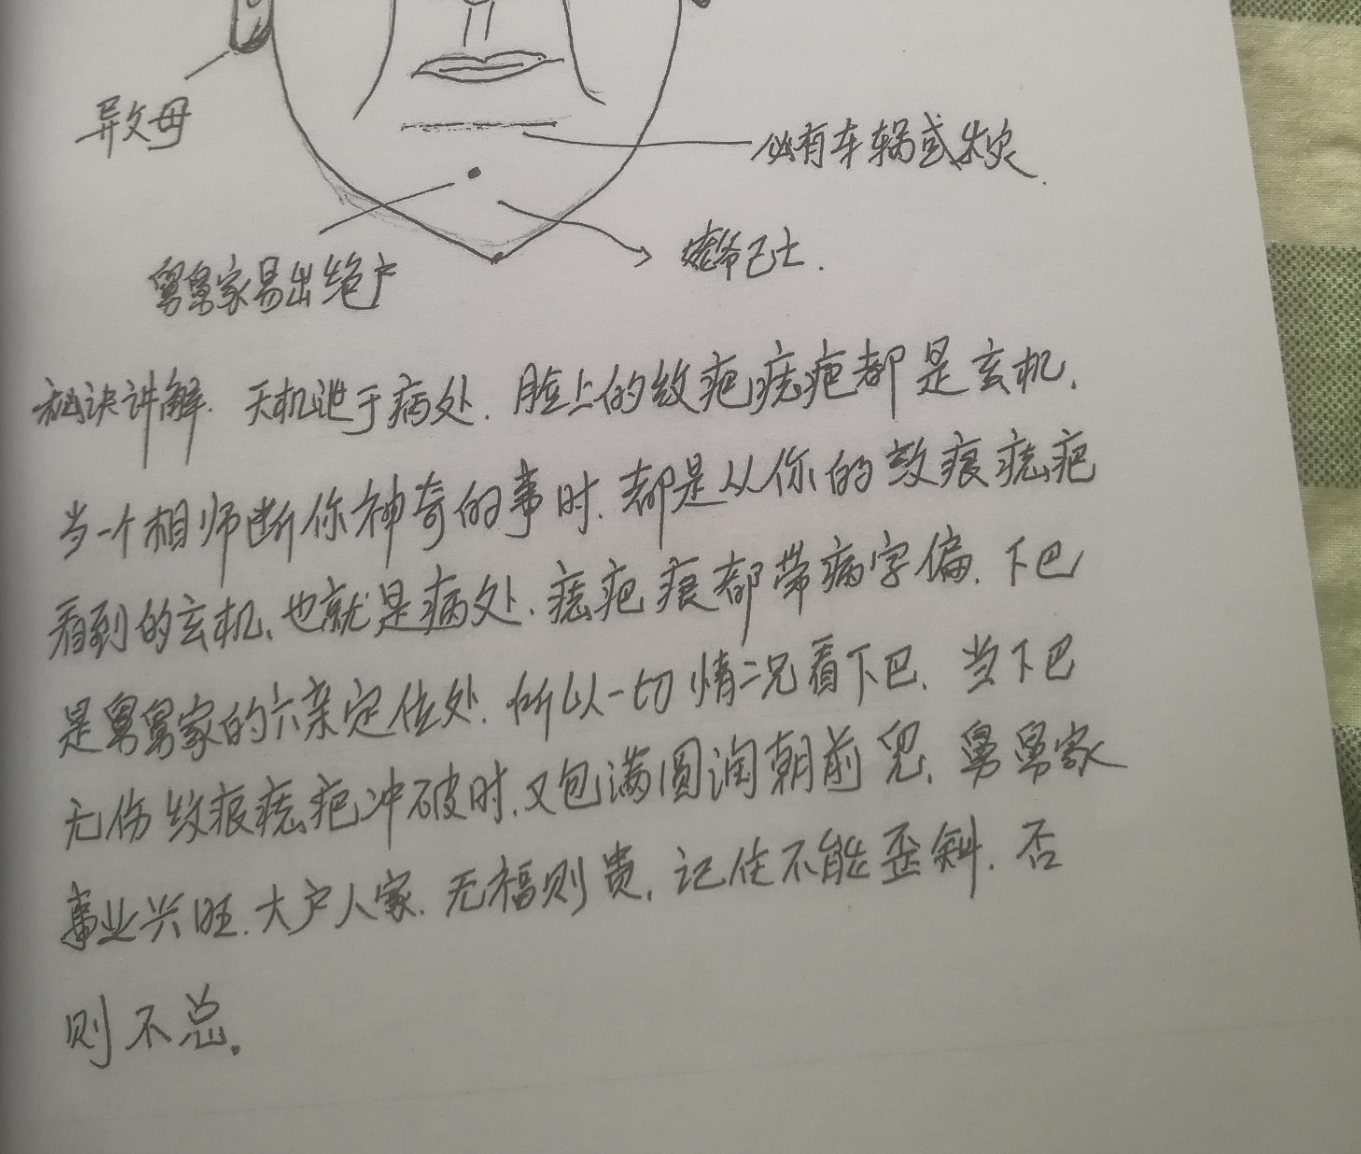 异父母
必有车祸或火灾.
舅舅家易出绝户
秘诀讲解. 天机泄于病处. 脸上的纹疤痣疤都是玄机.
当一个相师断你神奇的事时. 都是从你的纹痕痣疤
看到的玄机, 也就是病处. 痣疤痕都带病字偏. 下巴
是舅舅家的六亲定位处. 所以一切情况看下巴. 当下巴
无伤纹痕痣疤冲破时. 又包满圆润朝前兜. 舅舅家
事业兴旺. 大户人家. 无福则贵, 记住不能歪斜. 否
则不总.